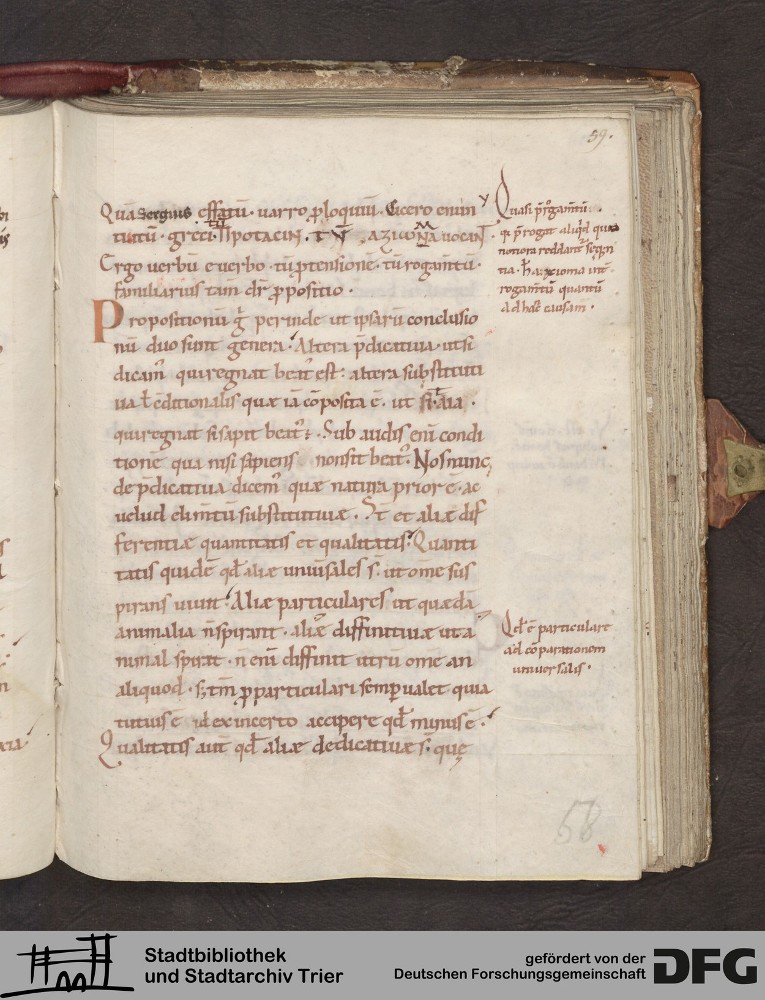 59.
Quā Sergius effatū · uarro ꝓloquiū · Cicero enun
tiatū · greci · Πpotacin · τ · azioma uocant
Ergo uerbū e uerbo · tū ꝓtensionē · tū rogamtū ·
familiarius tam̄ dr̄ ꝓpositio ·
Propositionū g̊ perinde ut ipsarū conclusio
nū duo sunt genera · Altera p̄dicatiua · ut si
dicam᷒ qui regnat beat᷒ est : altera substituti
ua ł c̄ditionalis quæ iā cōposita ē · ut si aīa ·
qui regnat si sapit beat᷒ : · Sub audis eni condi
tionē qua nisi sapiens non sit beat᷒ · Nos nunc
de p̄dicatiua dicem᷒ quæ natura prior ē · ac
uelud elim̄tū substitutiuæ · St̄ et aliæ dif
ferentiæ quantitatis et qualitatis · Quanti
tatis quidē qđ aliæ uniūsales s̄ · ut om̄e sus
pirans uiuit · Aliæ particulares ut quædā
animalia n̄ spirant · aliæ diffinitiuæ ut a
nimal spirat · n̄ eni diffinit utrū om̄e an
aliquod · s; tm̄ ꝓ particulari semꝑ ualet quia
tutius ē id ex incerto accipere qđ minus ē ·
Qualitatis aut̄ qđ aliæ dedicatiuæ s̄ · quę
Quasi p̄rogam̄tū :
nonora reddant̄
rogam̄tū quantū
ad hāc causam ·
Qđ ē particulare
ad cōparationem
uniuersalis ·
58
Stadtbibliothek
und Stadtarchiv Trier
gefördert von der
Deutschen Forschungsgemeinschaft
DFG